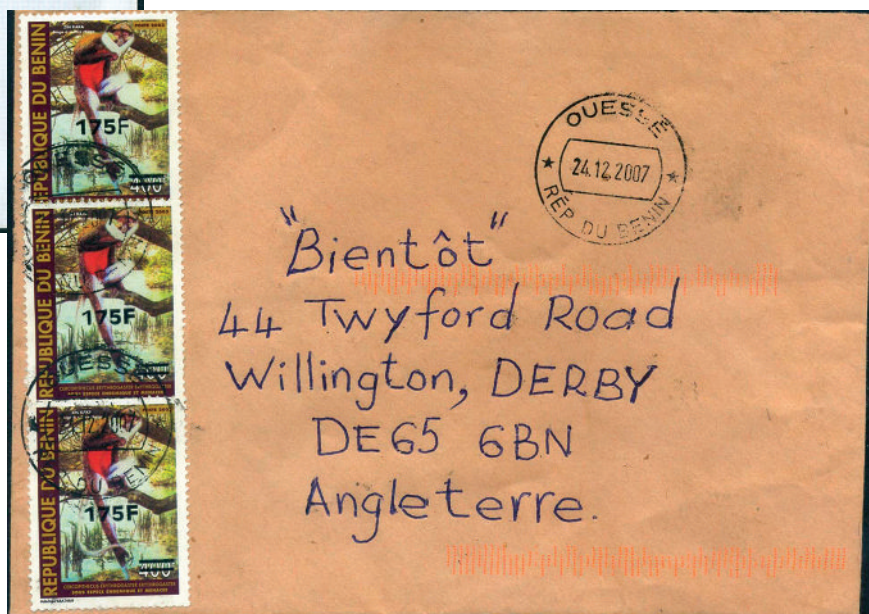 REPUBLIQUE DU BENIN
175F
400
REPUBLIQUE DU BENIN
175F
400
REPUBLIQUE DU BENIN
175F
400
OUESSÈ
24.12.2007
RÉP. DU BENIN
"Bientôt"
44 Twyford Road
Willington, DERBY
DE65 6BN
Angleterre.